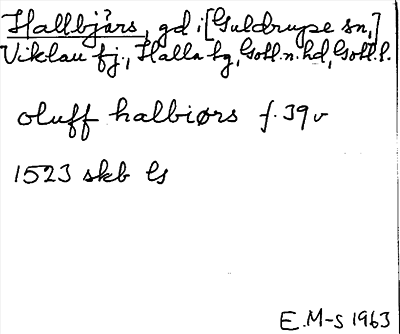 Hallbjårs, gd i [Guldrupe sn,]
Viklau fj., Halla tg, Gotl.n.hd, Gotl.l.
oluff halbiørs f. 39v
1523 skb Gs
E.M-s 1963